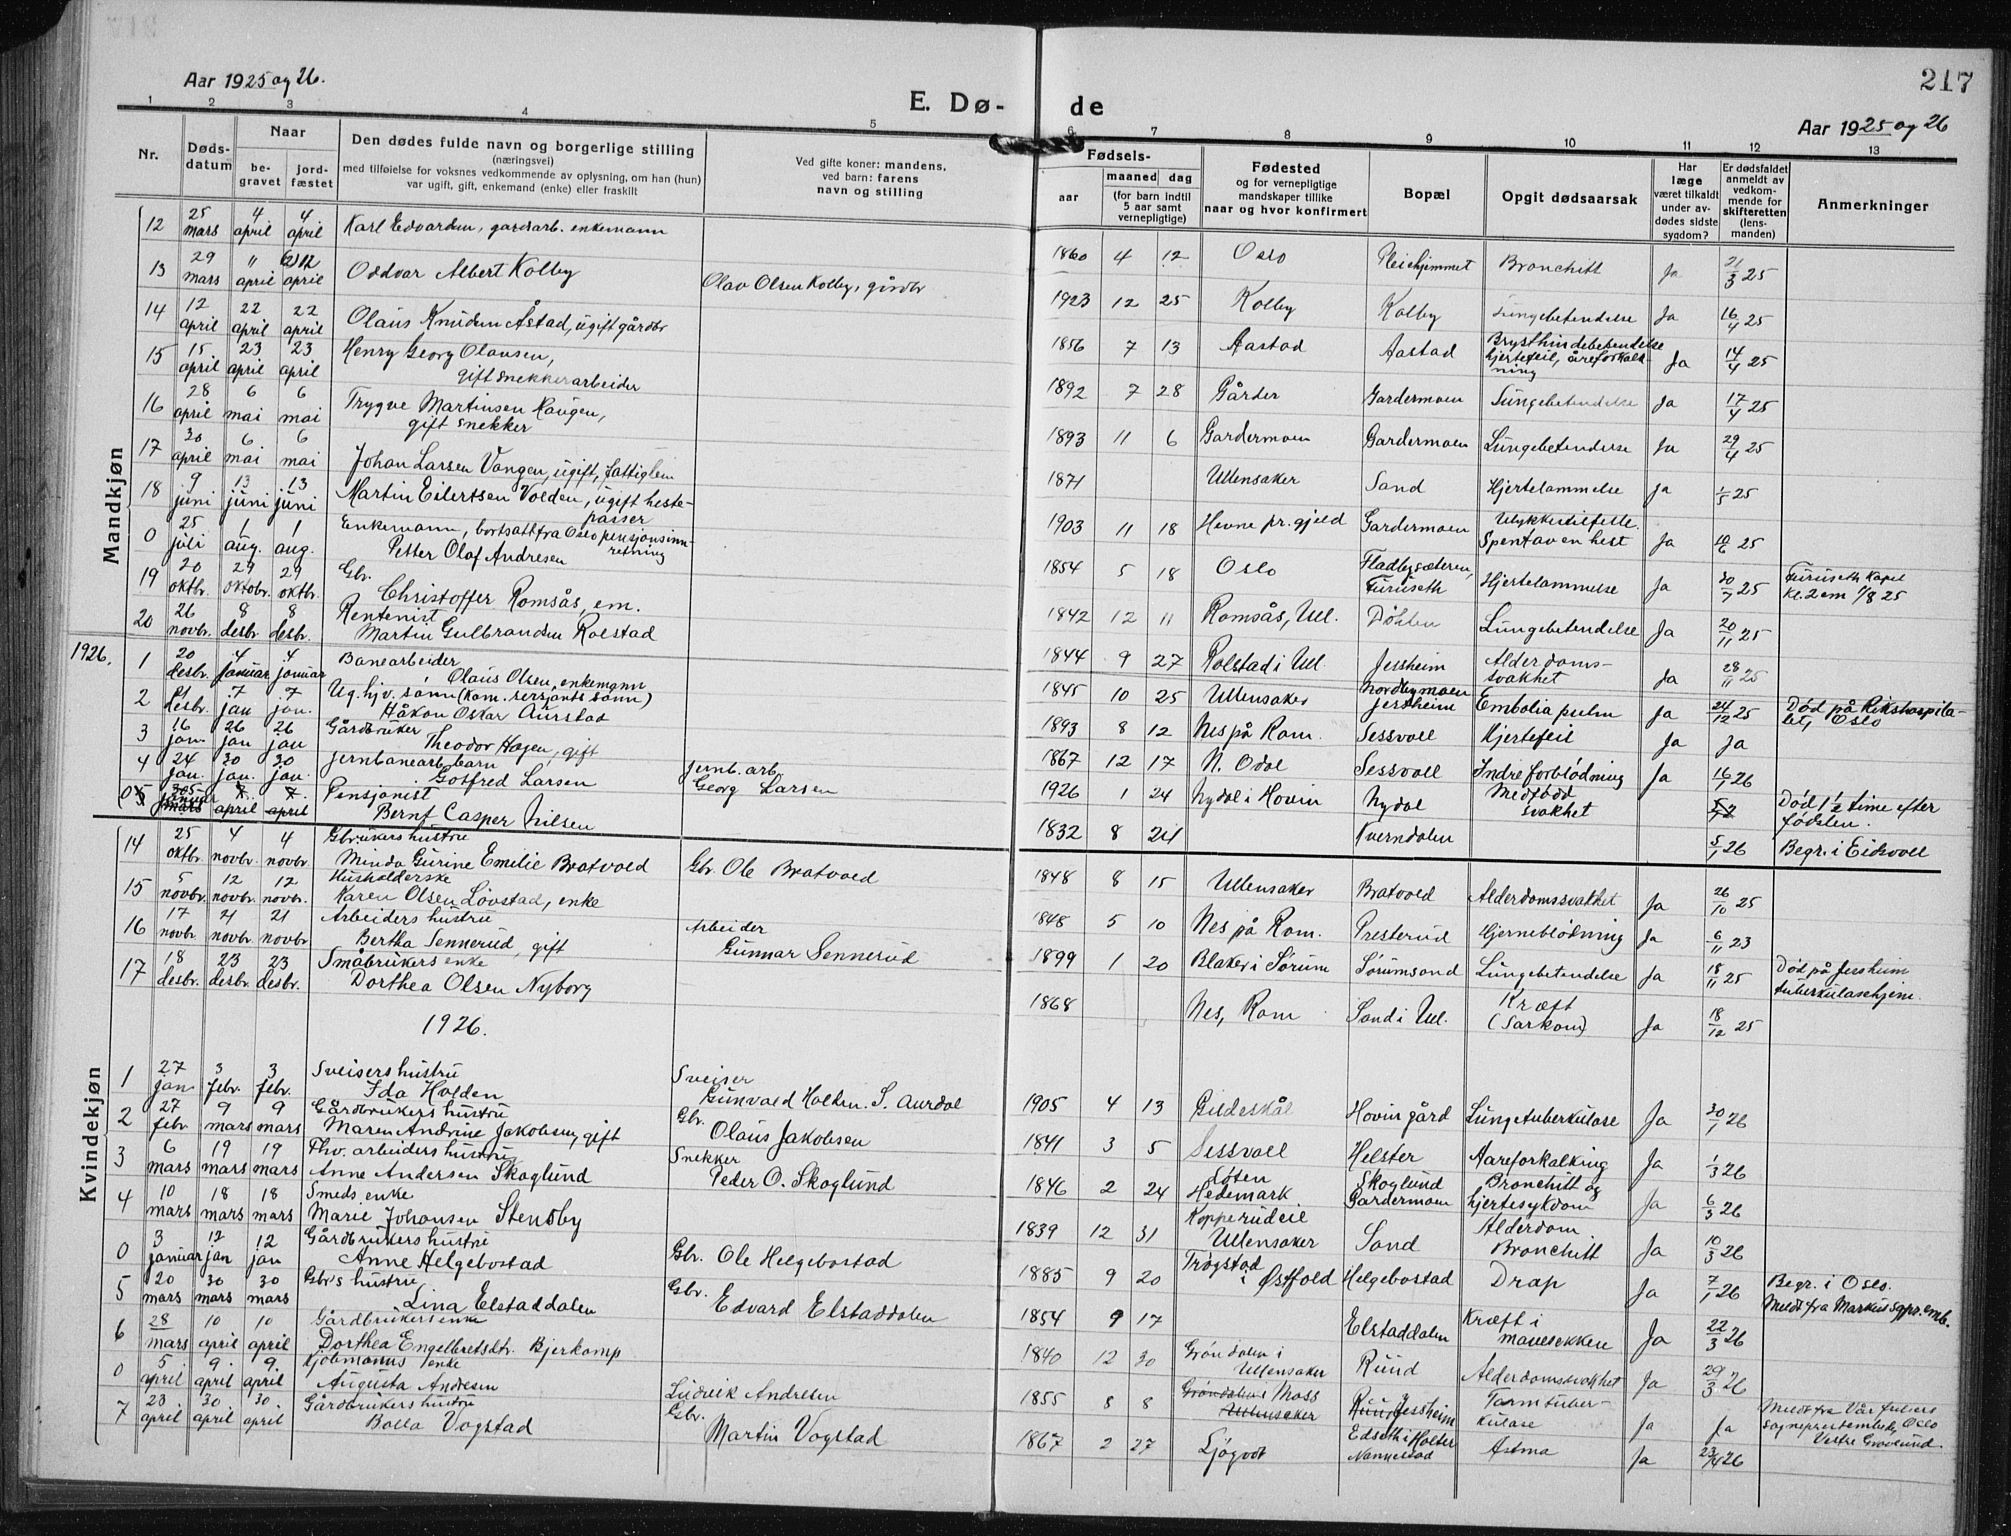 Aar 1925 og 26.
217
E. Dø- de
Aar 1925 og 26
1 2 3 4 5 6 7 8 9 10 11 12 13
Nr.
Døds-
datum
Naar
be-
gravet
jord-
fæstet
Den dødes fulde navn og borgerlige stilling
(næringsvei)
med tilføielse for voksnes vedkommende av oplysning, om han (hun)
var ugift, gift, enkemand (enke) eller fraskilt
Ved gifte koner: mandens,
ved barn: farens
navn og stilling
Fødsels-
aar
maaned dag
(for barn indtil
5 aar samt
vernepligtige)
Fødested
og for vernepligtige
mandskaper tillike
naar og hvor konfirmert
Bopæl
Opgit dødsaarsak
Har
læge
været tilkaldt
under av-
dødes sidste
sygdom?
Er dødsfaldet
anmeldt av
vedkom-
mende for
skifteretten
(lens-
manden)
Anmerkninger
Mandkjøn
12 25 mars 4 april 4 april Karl Edvardsen, gardsarb. enkemann 1860 4 12 Oslo Pleiehjemmet Bronchitt Ja 21/3 25
13 29 mars 11 april 12 april Oddvar Albert Kolby Olav Olsen Kolby, gårdbr 1923 12 25 Kolby Kolby Lungebetendelse Ja 16/4 25
14 12 april 22 april 22 april Olaus Knudsen Åstad, ugift gårdbr 1856 7 13 Aastad Aastad Brysthindebetendelse
hjertefeil, åreforkalk-
ning Ja 14/4 25
15 15 april 23 april 23 april Henry Georg Olausen,
gift snekkerarbeider 1892 7 28 Gårder Gardermoen Lungebetendelse Ja 17/4 25
16 28 april 6 mai 6 mai Trygve Martinsen Haugen,
gift snekker 1893 11 6 Gardermoen Gardermoen Lungebetendelse Ja 29/4 25
17 30 april 6 mai 6 mai Johan Larsen Vangen, ugift, fattiglem 1871 Ullensaker Sand Hjertelammelse Ja 1/5 25
18 9 juni 13 juni 13 juni Martin Eilertsen Volden, ugift heste-
passer 1903 11 18 Hevne pr.gjeld Gardermoen Ulykkestilfelle.
Spent av en hest Ja 10/6 25
0 25 juli 1 aug. 1 aug. Enkemann, bortsatt fra Oslo pensjonsinn-
retning
Petter Olaf Andresen 1854 5 18 Oslo Fladbysæteren,
Furuseth Hjertelammelse Ja 30/7 25 Furuseth Kapel
kl. 2 em 1/8 25
19 20 oktbr. 29 oktobr. 29 oktbr. Gbr.
Christoffer Romsås, em. 1842 12 11 Romsås, Ull. Døhlen Lungebetendelse Ja 20/11 25
20 26 novbr. 8 desbr. 8 desbr. Rentenist
Martin Gulbrandsen Rolstad 1844 9 27 Rolstad i Ull Jessheim Alderdoms-
svakhet Ja 28/11 25
1926.
1 20 desbr. 4 januar 4 januar Banearbeider
Olaus Olsen, enkemann 1845 10 25 Ullensaker Nordbymoen
Jessheim Embolia pulm Ja 24/12 25 Død på Rikshospita-
let, Oslo
2 desbr. 7 jan 7 jan. Ug. hjv. sønn (kom. sersjants sønn)
Håkon Oskar Aurstad 1893 8 12 Nes på Rom. Sessvoll Hjertefeil Ja Ja
3 16 jan. 26 jan 26 jan Gårdbruker
Theodor Hagen, gift 1867 12 17 N. Odal Sessvoll Indre forblødning Ja 16/1 26
4 24 jan. 30 jan. 30 jan. Jernbanearb. barn
Gotfred Larsen Jernb. arb.
Georg Larsen 1926 1 24 Nydal i Hovin Nydal Medfødd
svakhet Død 1½ time efter
fødslen.
0 5 januar april april Pensjonist
Bernt Casper Nilsen 1832 8 24 Kverndalen 5/1 26 Begr. i Eidsvoll
Kvindekjøn
14 25 oktbr. 4 novbr. 4 novbr. Gbrukers hustru
Minda Gurine Emilie Bratvold Gbr. Ole Bratvold 1848 8 15 Ullensaker Bratvold Alderdomssvakhet Ja 26/10 25
15 5 novbr. 12 novbr. 12 novbr. Husholderske
Karen Olsen Løvstad, enke 1848 5 10 Nes på Rom. Presterud Hjerneblødning Ja 6/11 23
16 17 novbr 21 novbr 21 novbr Arbeiders hustru
Bertha Sennerud, gift Arbeider
Gunnar Sennerud 1899 1 20 Blaker i Sørum Sørumsand Lungebetendelse Ja 18/11 25 Død på Jessheim
tuberkulosehjem.
17 18 desbr. 23 desbr. 23 desbr. Småbrukers enke
Dorthea Olsen Nyborg 1868 Nes, Rom Sand i Ull. Kræft
(Sarkom) Ja 18/12 25
1926.
1 27 jan 3 febr. 3 febr. Sveisers hustru
Ida Holden Sveiser
Gunvald Holden. S. Aurdal 1905 4 13 Gildeskål Hovin gård Lungetuberkulose Ja 30/1 26
2 27 febr 9 mars 9 mars Gårdbrukers hustru
Maren Andrine Jakobsen, gift Gbr.
Olaus Jakobsen 1841 3 5 Sessvoll Helster Aareforkalkning Ja 1/3 26
3 6 mars 19 mars 19 mars Fhv. arbeiders hustru
Anne Andersen Skoglund Snekker
Peder O. Skoglund 1846 2 24 Løten
Hedemark Skoglund
Gardermoen Bronchitt og
hjertesykdom Ja 6/3 26
4 10 mars 18 mars 18 mars Smeds enke
Marie Johansen Stensby 1839 12 31 Kopperudeie
Ullensaker Sand Alderdom
Bronchitt Ja 10/3 26
0 3 januar 12 jan 12 jan Gårdbrukers hustru
Anne Helgebostad Gbr. Ole Helgebostad 1885 9 20 Trøgstad
i Østfold Helgebostad Drap Ja 7/1 26 Begr. i Oslo.
Meldt fra Markus sgpr. emb.
5 20 mars 30 mars 30 mars Gbr's hustru
Lina Elstaddalen Gbr.
Edvard Elstaddalen 1854 9 17 Elstaddalen Kræft i
mavesekken Ja 22/3 26
6 28 mars 10 april 10 april Gårdbrukers enke
Dorthea Engelbretsdtr. Bjerkamp 1840 12 30 Grøndalen i
Ullensaker Ruud Alderdomssvakhet Ja 29/3 26
0 5. april 9. april 9. april Kjøbmanns enke
Augusta Andresen Ludvik Andresen 1855 8 8 Grøndalen i Moss
Ullensaker Ruud Jessheim Tarmtuber-
kulose Ja Ja Meldt fra Vår frelsers
sogneprestembede, Oslo
Vestre Gravlund.
7 23. april 30 april 30. april Gårdbrukers hustru
Bolla Vogstad Gbr.
Martin Vogstad 1867 2 27 Holter
Nannestad Astma Ja 23/4 26